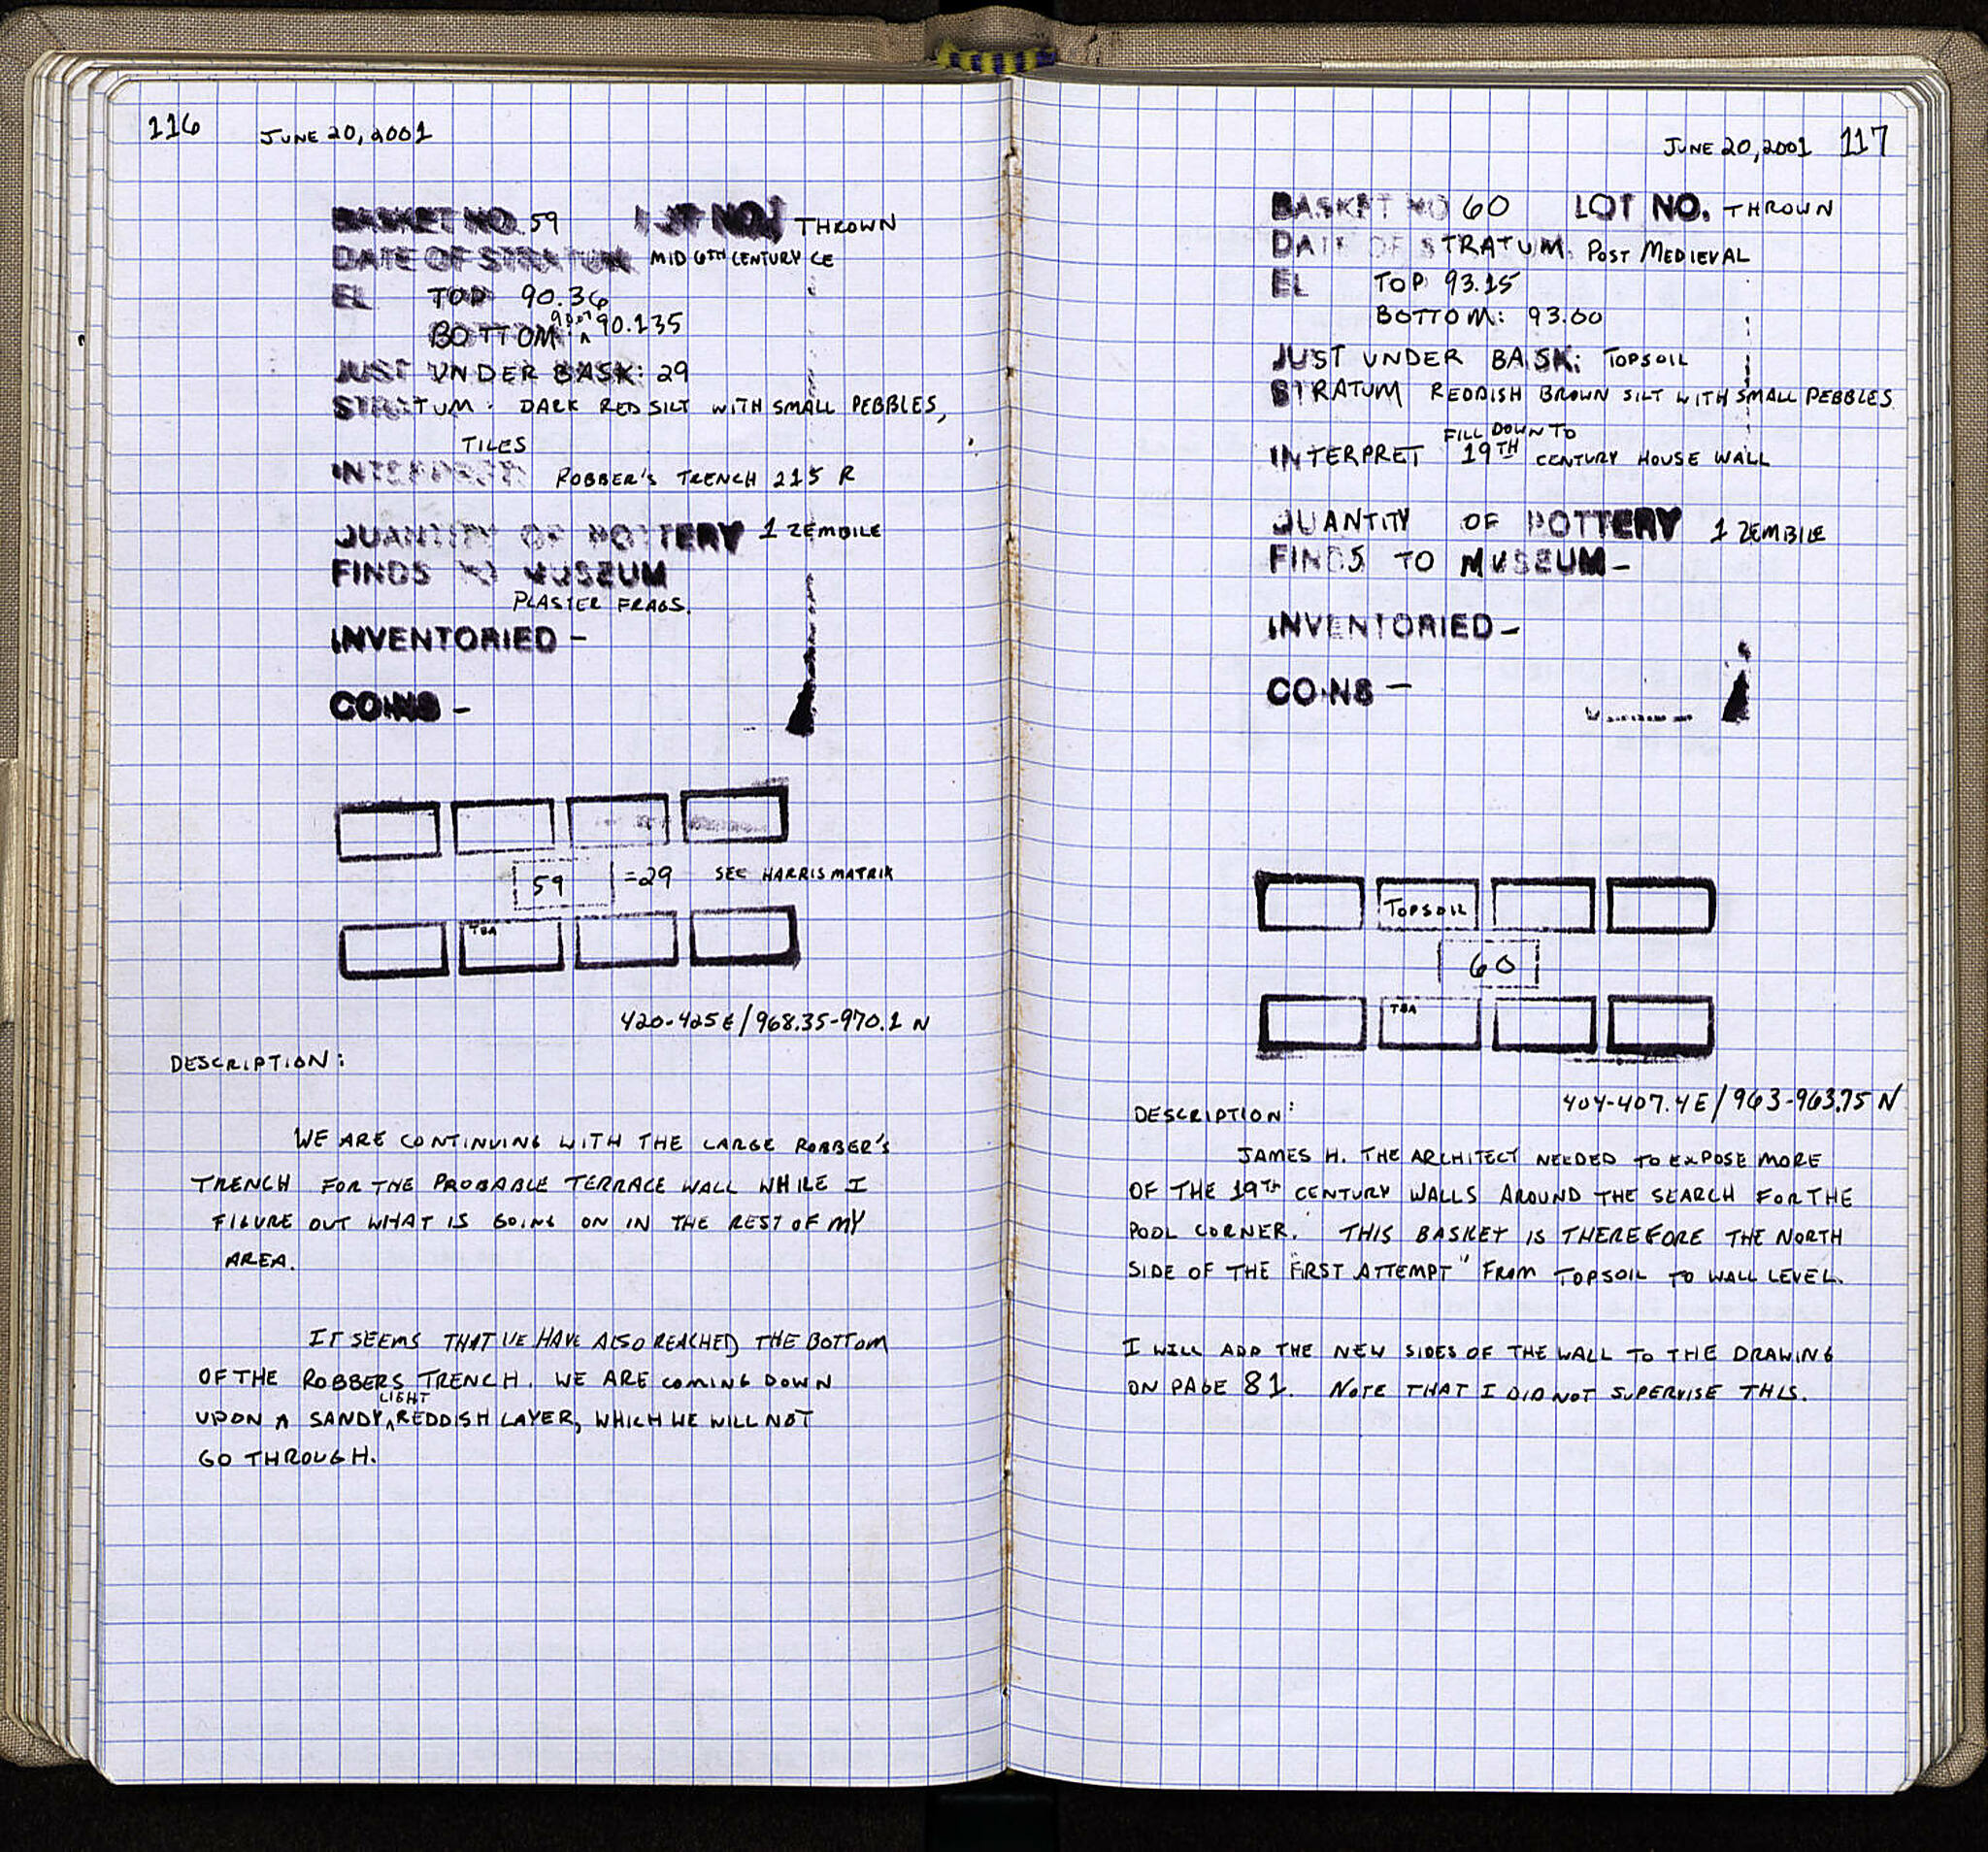 116 JUNE 20, 2001
BASKET NO. 59 LOT NO. THROWN
DATE OF STRATUM MID 6TH CENTURY CE
EL TOP 90.36
BOTTOM 90.135
JUST UNDER BASK: 29
STRATUM: DARK RED SILT WITH SMALL PEBBLES,
TILES
INTERPRET: ROBBER'S TRENCH 215 R
QUANTITY OF POTTERY 1 ZEMBILE
FINDS TO MUSEUM
PLASTER FRAGS.
INVENTORIED –
COINS –
59 =29 SEE HARRIS MATRIX
TBA
420-425E/968.35-970.1 N
DESCRIPTION:
WE ARE CONTINUING WITH THE LARGE ROBBER'S
TRENCH FOR THE PROBABLE TERRACE WALL WHILE I
FIGURE OUT WHAT IS GOING ON IN THE REST OF MY
AREA.
IT SEEMS THAT WE HAVE ALSO REACHED THE BOTTOM
OF THE ROBBERS TRENCH. WE ARE COMING DOWN
LIGHT
UPON A SANDY ^ REDDISH LAYER, WHICH WE WILL NOT
GO THROUGH.
JUNE 20, 2001 117
BASKET NO 60 LOT NO. THROWN
DATE OF STRATUM: POST MEDIEVAL
EL TOP 93.15
BOTTOM: 93.00
JUST UNDER BASK: TOPSOIL
STRATUM REDDISH BROWN SILT WITH SMALL PEBBLES
FILL DOWN TO
INTERPRET 19TH CENTURY HOUSE WALL
QUANTITY OF POTTERY 1 ZEMBILE
FINDS TO MUSEUM –
INVENTORIED –
COINS –
TOPSOIL
60
TBA
404-407.4E/963-963.75 N
DESCRIPTION:
JAMES H. THE ARCHITECT NEEDED TO EXPOSE MORE
OF THE 19TH CENTURY WALLS AROUND THE SEARCH FOR THE
POOL CORNER. THIS BASKET IS THEREFORE THE NORTH
SIDE OF THE "FIRST ATTEMPT" FROM TOPSOIL TO WALL LEVEL.
I WILL ADD THE NEW SIDES OF THE WALL TO THE DRAWING
ON PAGE 81. NOTE THAT I DID NOT SUPERVISE THIS.